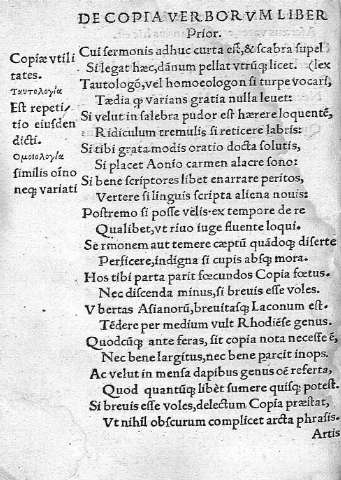 DE COPIA VERBORVM LIBER
Prior.
Copiæ vtili
tates.
Ταυτολογία
Est repeti
tio eiusdē
dicti.
Ομοιολογία
similis oīno
neq; variati
Cui sermonis adhuc curta est, & scabra supel
Si legat hæc, dānum pellat vtrūq; licet. (lex
Tautologō, vel homœologon si turpe vocari,
Tædia q̄ varians gratia nulla leuet:
Si velut in salebra pudor est hærere loquentē,
Ridiculum tremulis si reticere labris:
Si tibi grata modis oratio docta solutis,
Si placet Aonio carmen alacre sono:
Si bene scriptores libet enarrare peritos,
Vertere si linguis scripta aliena nouis:
Postremo si posse velis ex tempore de re
Qualibet, vt riuo iuge fluente loqui.
Sermonem aut temere cæptū quādoq; diserte
Perficere, indigna si cupis absq; mora.
Hos tibi parta parit fœcundos Copia fœtus.
Nec discenda minus, si breuis esse voles.
Vbertas Asianorū, breuitasq; Laconum est.
Tēdere per medium vult Rhodiēse genus.
Quodcūq; ante feras, sit copia nota necesse ē,
Nec bene largitus, nec bene parcit inops.
Ac velut in mensa dapibus genus oē referta,
Quod quantūq; libèt sumere quisq; potest.
Si breuis esse voles, delectum Copia præstat,
Vt nihil obscurum complicet arcta phrasis.
Artis